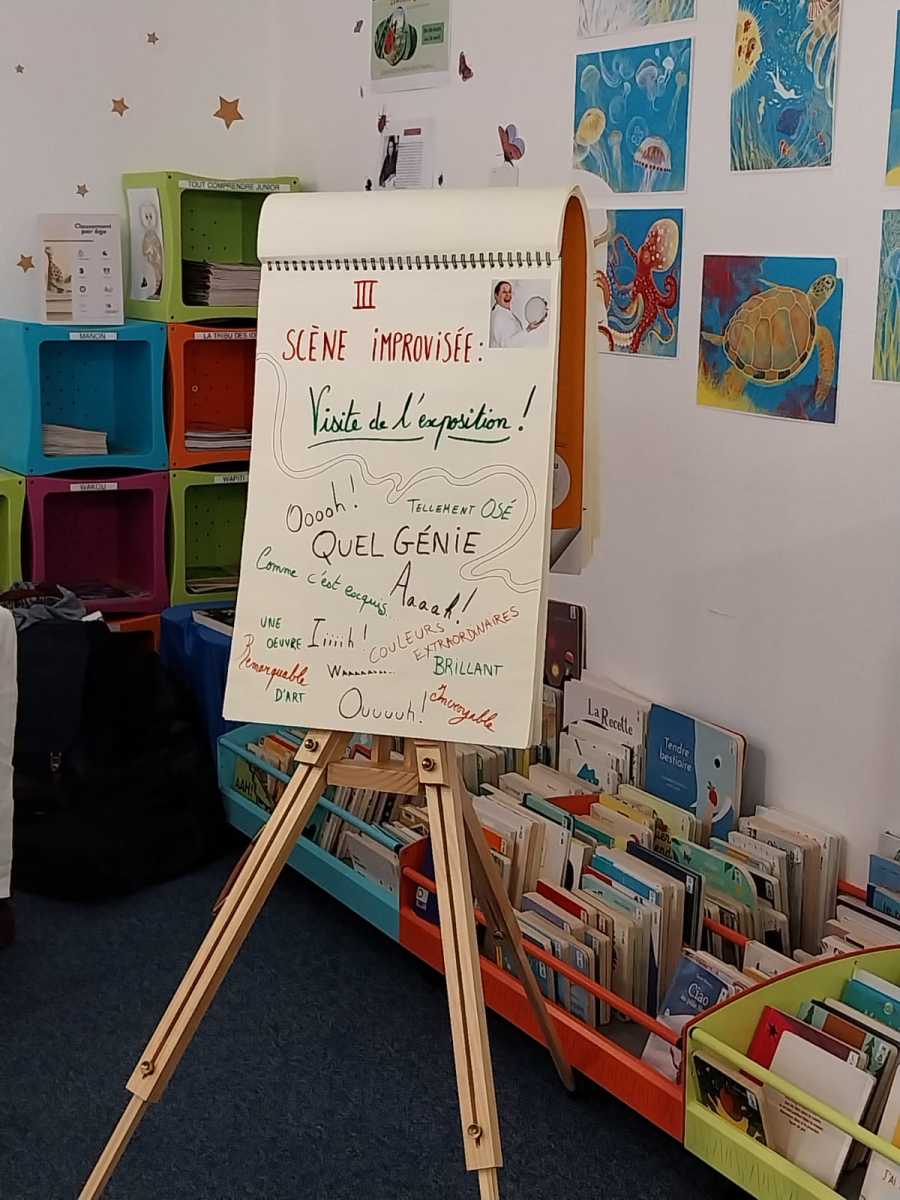 TOUT COMPRENDRE JUNIOR
Classement
par âge
MANON
LA TRIBU DES
WAKOU
WAPITI
III
SCÈNE IMPROVISÉE:
Visite de l'exposition!
Ooooh!
TELLEMENT OSÉ
QUEL GÉNIE
Comme c'est exquis
Aaaah!
UNE
OEUVRE
Iiiiih!
COULEURS
EXTRAORDINAIRES
Remarquable
BRILLANT
D'ART
Ouuuuh!
Incroyable
La Recette
Tendre
bestiaire
AAH!
Ciao
J'AI